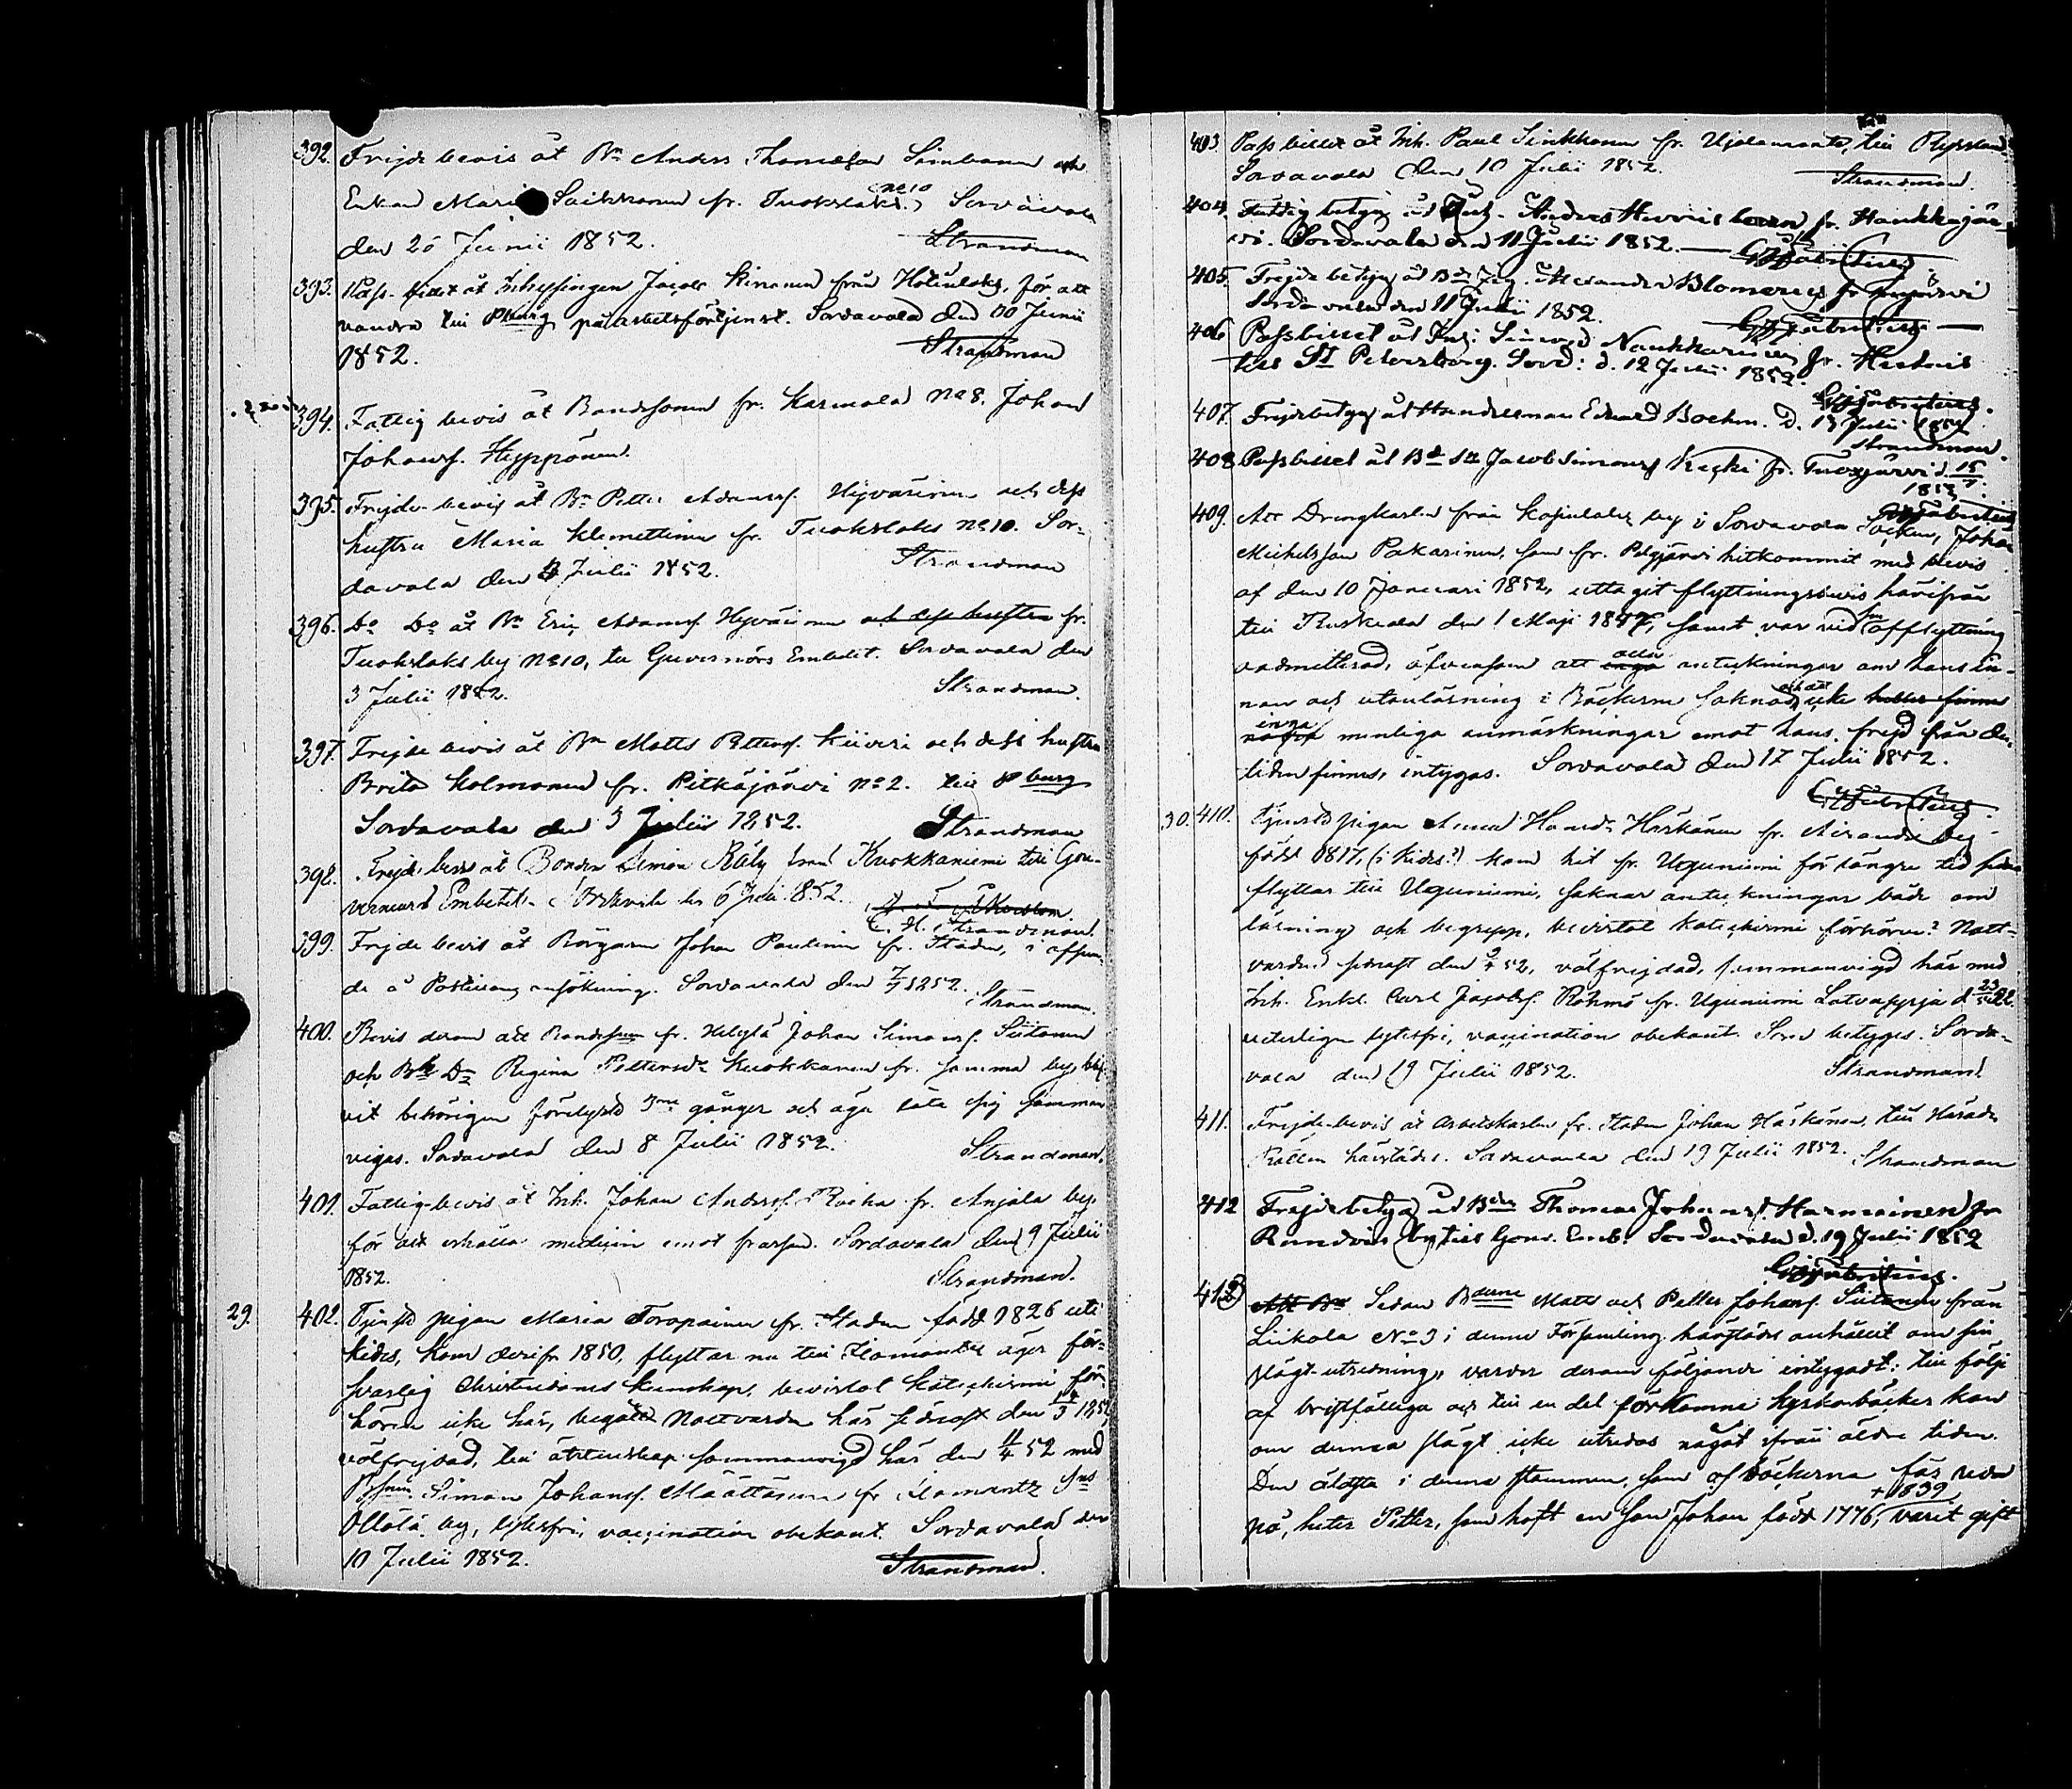 392. Frejde bevis åt Bn Anders Thomasson Simbanen och
Enkan Maria Saikkonen fr. Tuokslaks no 10, Sordavala
den 26 Junii 1852. Strandman
393. Pass-billet åt Inhysingen Jacob Kinnunen från Hotinlaks, för att
vandra till Pburg på arbetsförtjenst. Sordavala den 00 Junii
1852. Strandman
394. Fattig bevis åt Bondesonen fr. Karmala No 8. Johan
Johanss. Hyppönen.
395. Frejde-bevis åt Bn Petter Adamss. Hyvärinen och dess
hustru Maria Klemettinen fr. Tuokslaks No 10. Sor-
davala den 3 Julii 1852. Strandman
396. Do Do åt Bn Eric Adamss. Hyvärinen och dess hustru fr.
Tuokslaks by No 10, till Guvernörs Embetet. Sordavala den
3 Julii 1852. Strandman.
397. Frejde bevis åt Bn Matts Petterss. Kiiveri och dess hustru
Brita Kolmonen fr. Pitkäjärvi No 2. till Pburg
Sordavala den 3 Julii 1852. Strandman
398. Frejde bevis åt Bonden Simon Räty från Kuokkaniemi till Gou-
verneurs Embetet. Sordavala den 6 Juli 1852.
C. H. Strandman
399. Frejde bevis åt Borgaren Johan Paulinen fr. Staden, i
de å ansökning. Sordavala den 7/7 1852. Strandman.
400. Bevis derom att Bondesonen fr. Helylä Johan Simonss. Siitonen
och Bde Dr Regina Pettersdr Kuokkanen fr. samma by, bli-
vit behörigen förelyste 3ne gånger och äga låta sig samman
vigas. Sordavala den 8 Julii 1852. Strandman.
401. Fattig-bevis åt Inh. Johan Anderss. Rocka fr. Anjala by,
för att erhålla medicin emot frossan. Sordavala den 9 Julii
1852. Strandman.
29. 402. Tjenste pigan Maria Toropainen fr. Staden född 1826 uti
Kides, kom derifr 1850, flyttar nu till Ilomantz äger för-
svarlig Christendoms kunskap, bevistat Katechismi för-
hören icke här, begått Nattvarden här sednast den 14/3 1852
välfrejdad, till äktenskap sammanvigd här den 11/4 52 med
Simon Johanss. Määttänen fr Ilomantz Sns
Ollola by, lytesfri, vaccination obekant. Sordavala den
10 Julii 1852. Strandman.
403. Pass billet åt Inh. Paul Sinkkonen fr. Ujalamanta, till Ryssland.
Sordavala den 10 Julii 1852. Strandman.
404. Fattig betyg åt Inh. Anders Hurri fr. Haukkajär-
vi. Sordavala den 11 Julii 1852. Fabritius
405. Frejde betyg åt Alexander Blomerus fr
Sordavala den 11 Julii 1852. Fabritius
406 Passbillet åt Inh: Simon Naukkarinen fr.
till St Petersburg. Sord: d. 12 Julii 1852.
Fabritius.
407. Frejdebetyg åt Handelsman Edvard Boehm. D. 13 Julii 1852
Strandman.
408 Passbillet åt Bde Sn Jacob Simonss Kecki fr. Tuoxjärvi d. 15/7
1852. Fabritius
409. Att Drengkarlen från Kapialaks by i Sordavala Socken, Johan
Michelsson Pakarinen, som fr. Pelgjärvi hitkommit med bevis
af den 10 Januari 1852, uttagit flyttningsbevis härifrån
till Ruskeala den 1 Maji 1847, samt var vid sin afflyttning
, äfvensom att anteckningar om hans in-
nan och utanläsning i Böckerne saknas, och att icke heller finnes
inga menliga anmärkningar emot hans frejd från den
tiden finnes, intygas. Sordavala den 17 Julii 1852.
Fabritius.
30. 410. Tjenste pigan Anna Hansdr Härkönen fr. Airanne by
född 1817, (i Kides?) kom hit fr. Uguniemi för längre tid sedan
flyttar till Uguniemi, saknar anteckningar både om
läsning och begrepp, bevistat Katechismi förhören? Natt-
varden sednast den 52, välfrejdad, sammanvigd här med
Inh. Enkl. Carl Jacobs. Röhmö fr. Uguniemi Latvasyrjä d 23/5 52.
veterligen lytesfri, vaccination obekant. Som betygges. Sorda-
vala den 19 Julii 1852. Strandman.
411. Frejde-bevis åt arbetskarlen fr. Staden Johan Häkkänen, till Härads
Rätten härstädes. Sordavala den 19 Julii 1852. Strandman
412 Frejdebetyg åt Bden Thomas Johanss. Harmoinen fr
by till Gouv. Emb. Sordavala d. 19 Julii 1852
Fabritius.
413 Att Bn Sedan Bderne Matts och Petter Johanss. Siitonen från
Liikola No 3 i denna Församling härstädes anhållit om sin
slägt-utredning, varder derom följande intygadt: till följe
af bristfälliga och till en del förkomna Kyrkoböcker kan
om denna slägt icke utredas något från äldre tider.
Den äldsta i denna stammen, som af böckerna fås reda
på, heter Petter, som haft en Son Johan född 1776, + 1839 varit gift